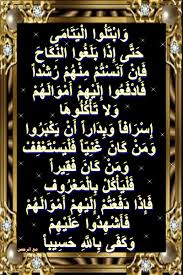 وَابْتَلُوا الْيَتَامَى
حَتَّى إِذَا بَلَغُوا النِّكَاحَ
فَإِنْ آنَسْتُمْ مِنْهُمْ رُشْداً
فَادْفَعُوا إِلَيْهِمْ أَمْوَالَهُمْ
وَلَا تَأْكُلُوهَا
إِسْرَافاً وَبِدَاراً أَنْ يَكْبَرُوا
وَمَنْ كَانَ غَنِيّاً فَلْيَسْتَعْفِفْ
وَمَنْ كَانَ فَقِيراً
فَلْيَأْكُلْ بِالْمَعْرُوفِ
فَإِذَا دَفَعْتُمْ إِلَيْهِمْ أَمْوَالَهُمْ
فَأَشْهِدُوا عَلَيْهِمْ
وَكَفَى بِاللَّهِ حَسِيباً